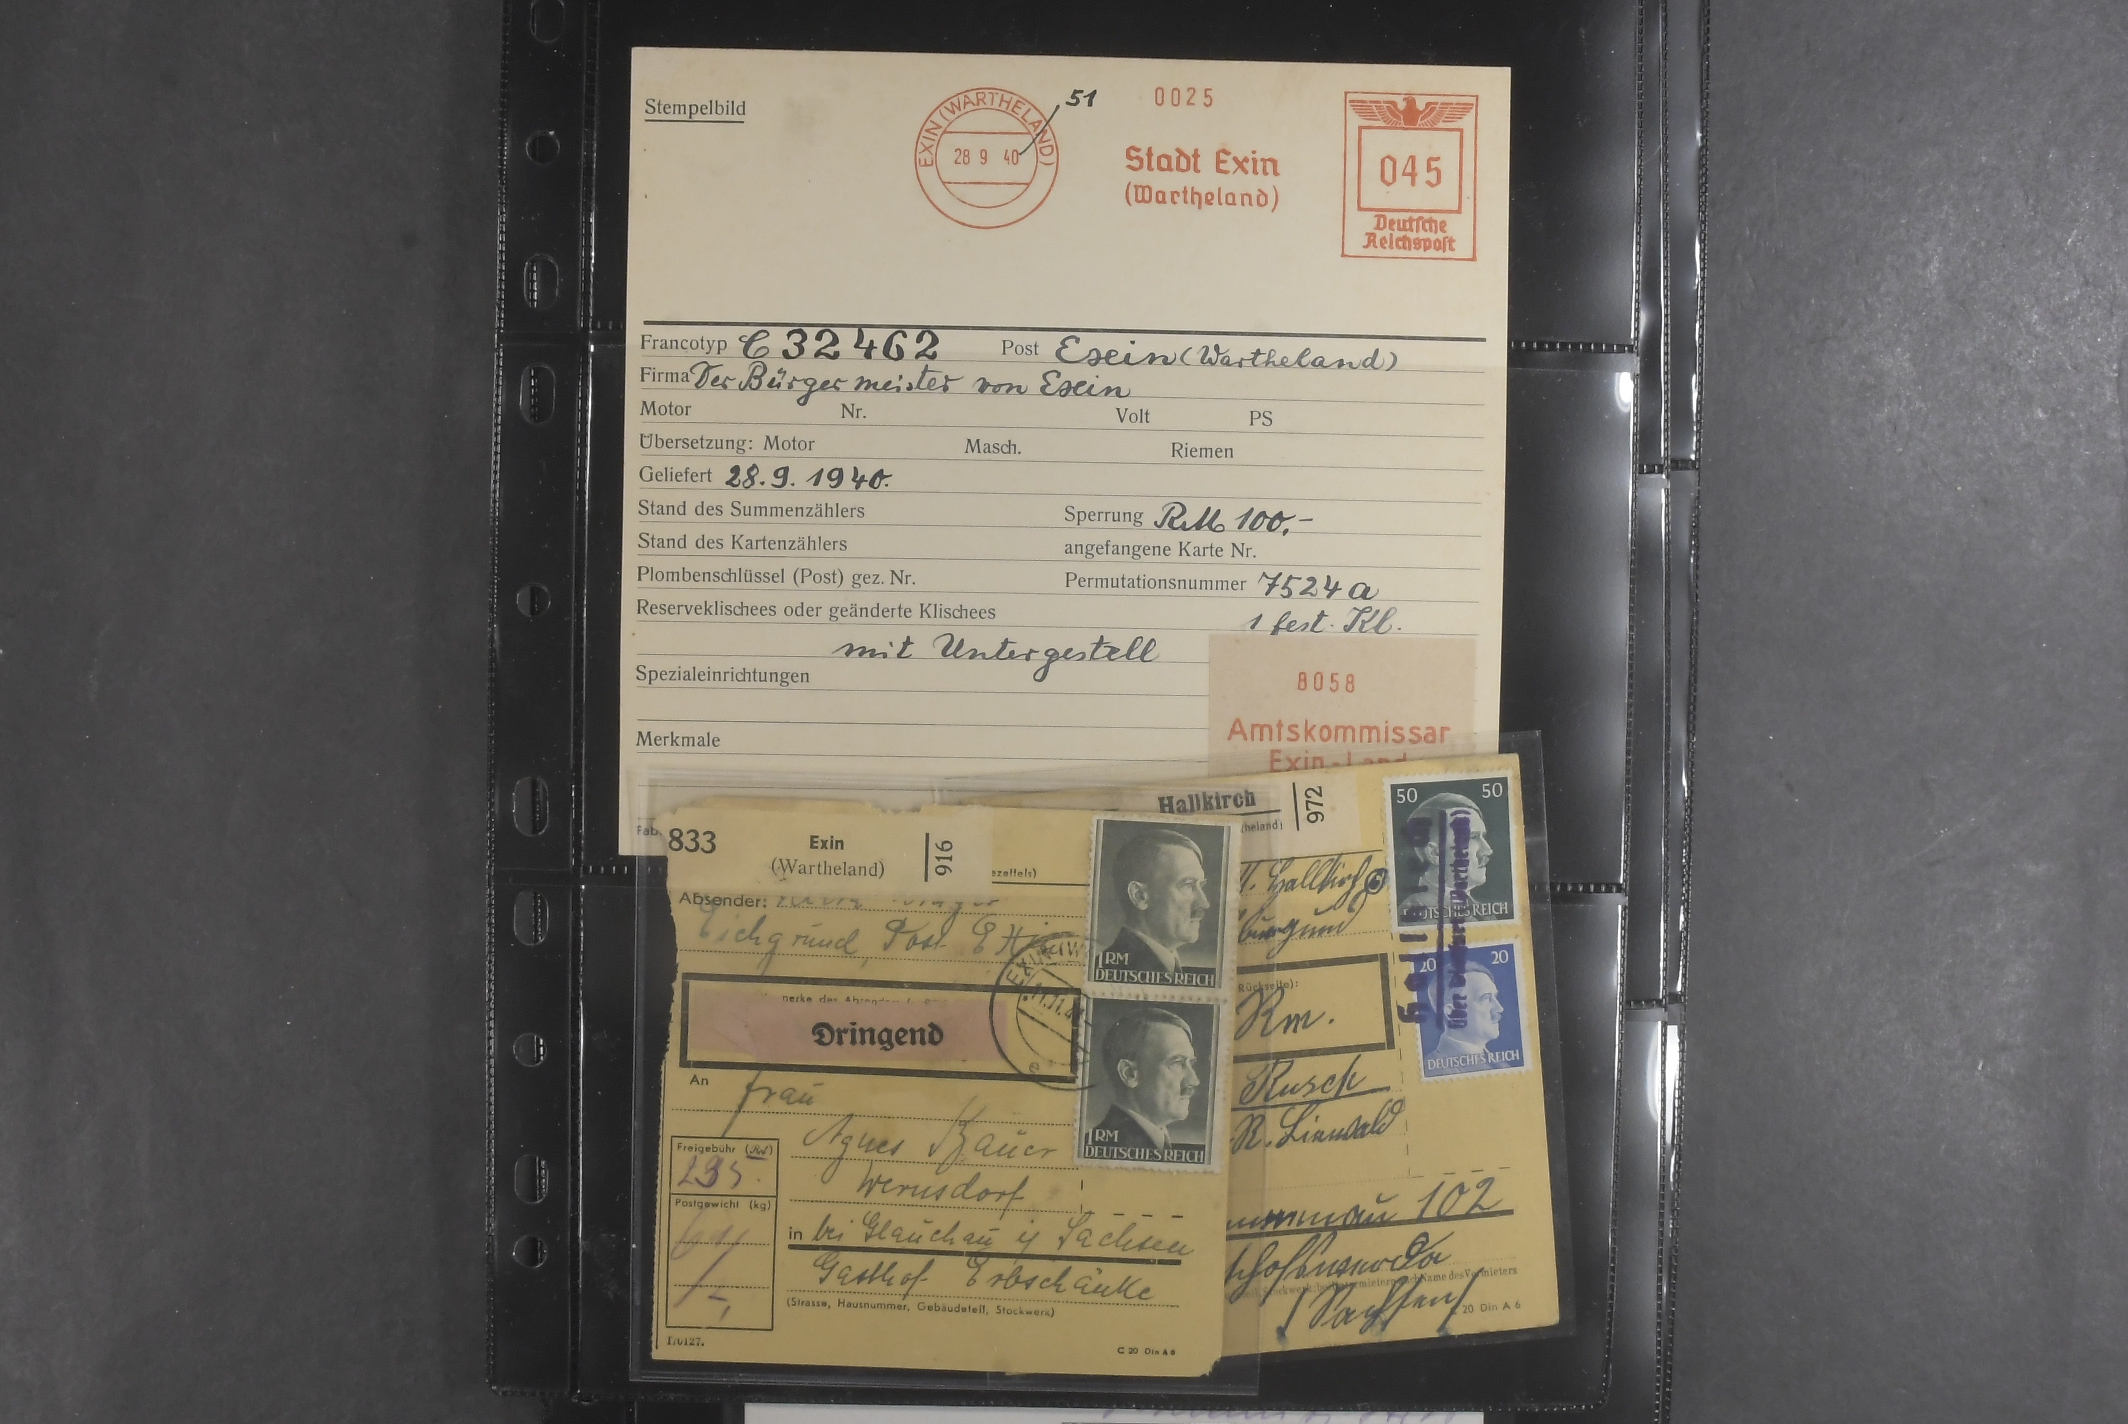 Stempelbild
EXIN (WARTHELAND)
28 9 40
51
0025
Stadt Exin
(Wartheland)
045
Deutsche
Reichspost
Francotyp C 32462 Post Exin (Wartheland)
Firma Der Bürgermeister von Exin
Motor Nr. Volt PS
Übersetzung: Motor Masch. Riemen
Geliefert 28.9.1940.
Stand des Summenzählers Sperrung RM 100,-
Stand des Kartenzählers angefangene Karte Nr.
Plombenschlüssel (Post) gez. Nr. Permutationsnummer 7524a
Reserveklischees oder geänderte Klischees 1 fest. Kl.
mit Untergestell
Spezialeinrichtungen
Merkmale
8058
Amtskommissar
Exin-Land
Fab.
833
Exin
(Wartheland)
916
Absender:
Eichgrund, Post Exin
Dringend
An Frau
Agnes Bauer
Wernsdorf
in bei Glauchau i/ Sachsen
Gasthof Erbschänke
(Strasse, Hausnummer, Gebäudeteil, Stockwerk)
Freigebühr
Postgewicht (kg)
C 20 Din A 6
1 RM
DEUTSCHES REICH
1 RM
DEUTSCHES REICH
Hallkirch
972
50 50
DEUTSCHES REICH
20 20
DEUTSCHES REICH
Rückseite):
Rm.
Rusch
102
(Sachsen)
20 Din A 6